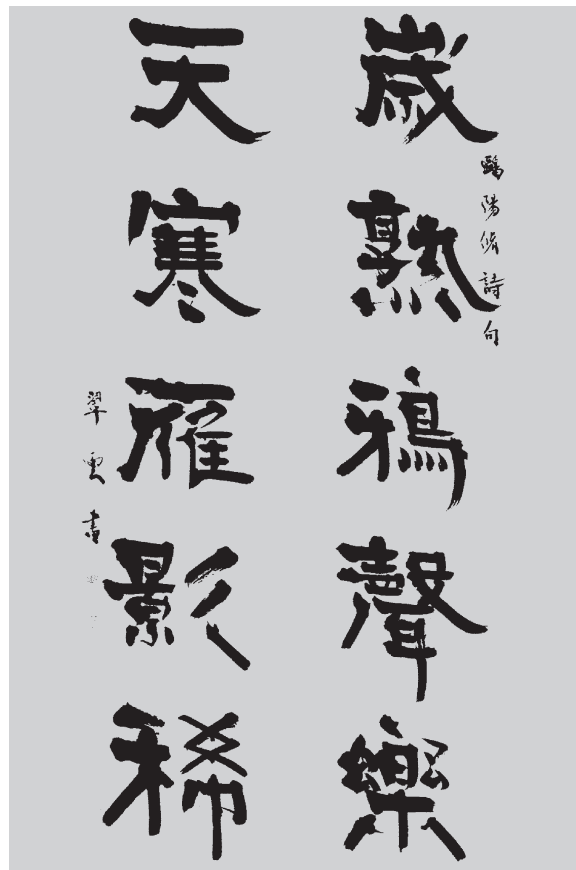 歲熟鴉聲樂
歐陽脩詩句
天寒雁影稀
翠雲書